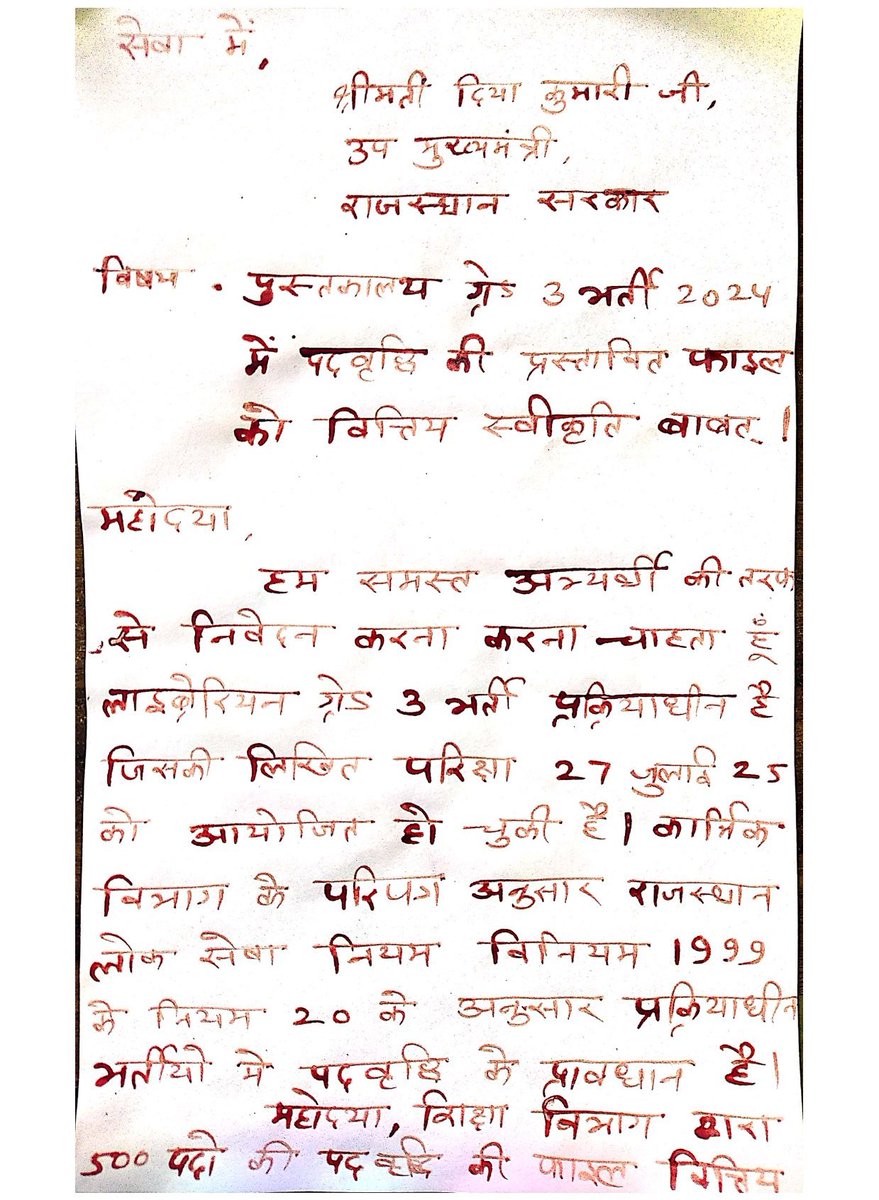 सेवा में,
श्रीमती दिया कुमारी जी,
उप मुख्यमंत्री,
राजस्थान सरकार
विषय . पुस्तकालय ग्रेड 3 भर्ती 2024
में पदवृद्धि की प्रस्तावित फाइल
को वित्तिय स्वीकृति बाबत् ।
महोदया,
हम समस्त अभ्यर्थी की तरफ
से निवेदन करना करना चाहता हूँ
लाइब्रेरियन ग्रेड 3 भर्ती प्रक्रियाधीन है
जिसकी लिखित परिक्षा 27 जुलाई 25
को आयोजित हो चुकी है । कार्मिक
विभाग के अनुसार राजस्थान
लोक सेवा नियम विनियम 1999
के नियम 20 के अनुसार प्रक्रियाधीन
भर्तीयो मे पदवृद्धि के प्रावधान है।
महोदया, शिक्षा विभाग द्वारा
500 पदो की पदवृद्धि की फाइल वित्तिय